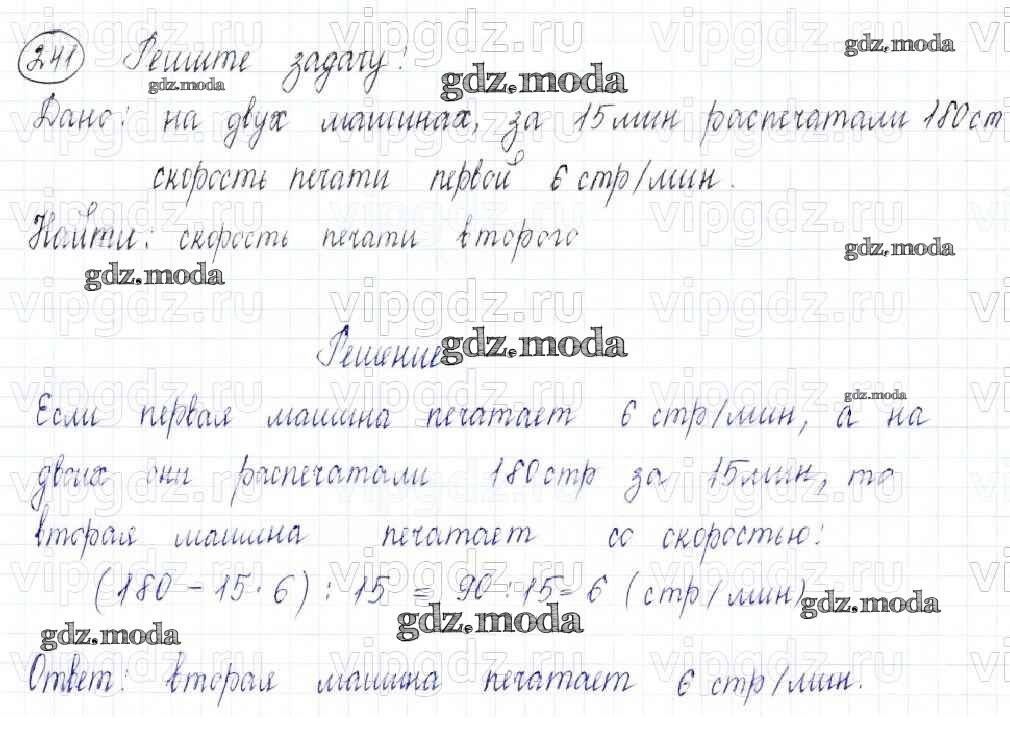 241 Решите задачу!
Дано: на двух машинах, за 15 мин распечатали 180 ст
скорость печати первой 6 стр/мин.
Найти: скорость печати второго
Решение
Если первая машина печатает 6 стр/мин, а на
двоих они распечатали 180 стр за 15 мин, то
вторая машина печатает со скоростью:
(180 - 15 · 6) : 15 = 90 : 15 = 6 (стр/мин)
Ответ: вторая машина печатает 6 стр/мин.
gdz.moda
vipgdz.ru